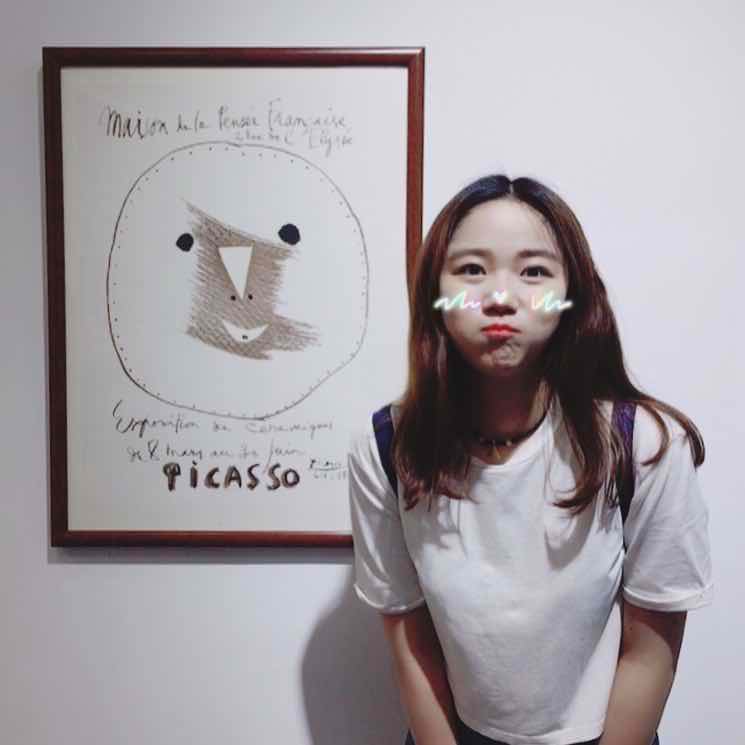 Maison de la Pensée Française
2 Rue de L'Elysée
Exposition de ceramiques
de 8 mars au 30 juin
PICASSO